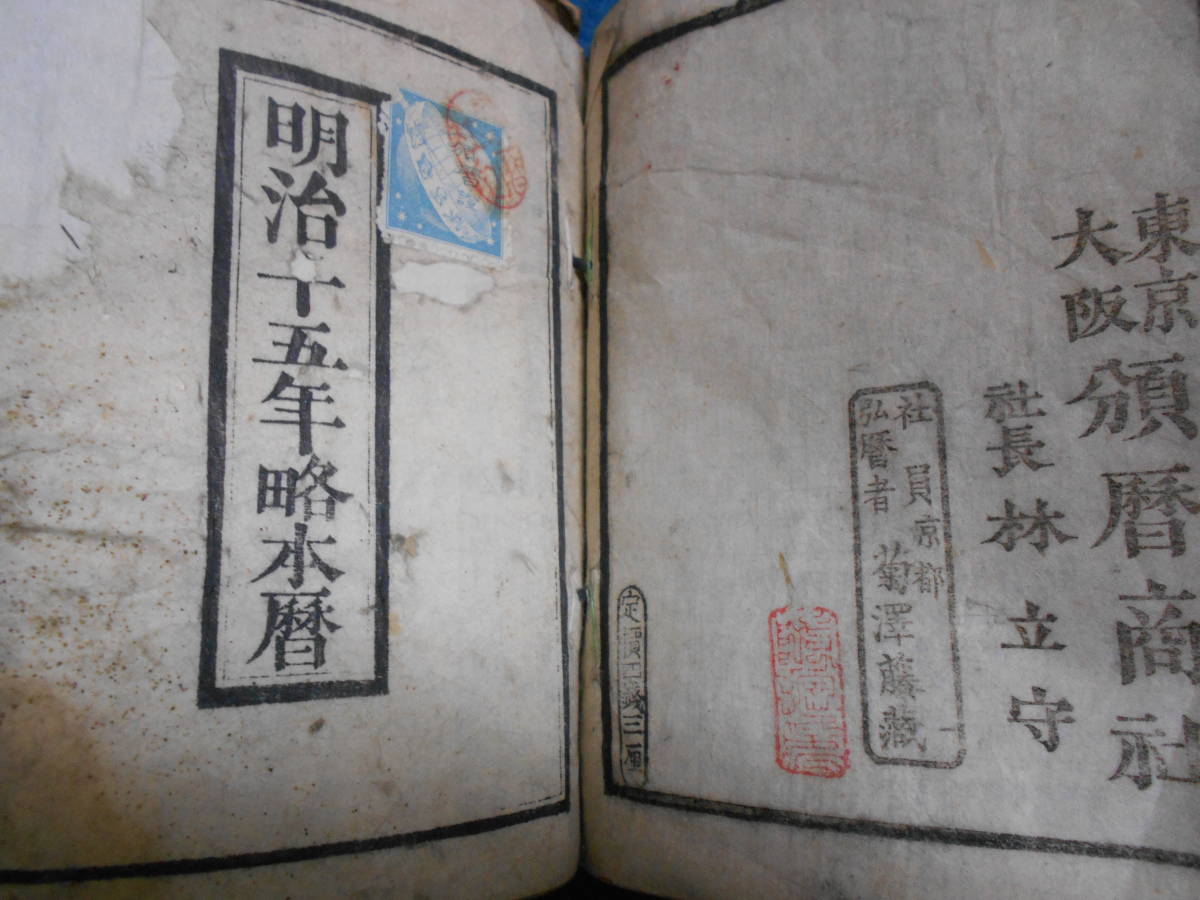 東京
大阪
頒暦商社
社長 林立守
社員京都
弘暦者 菊澤藤藏
定價五錢三厘
明治十五年略本暦